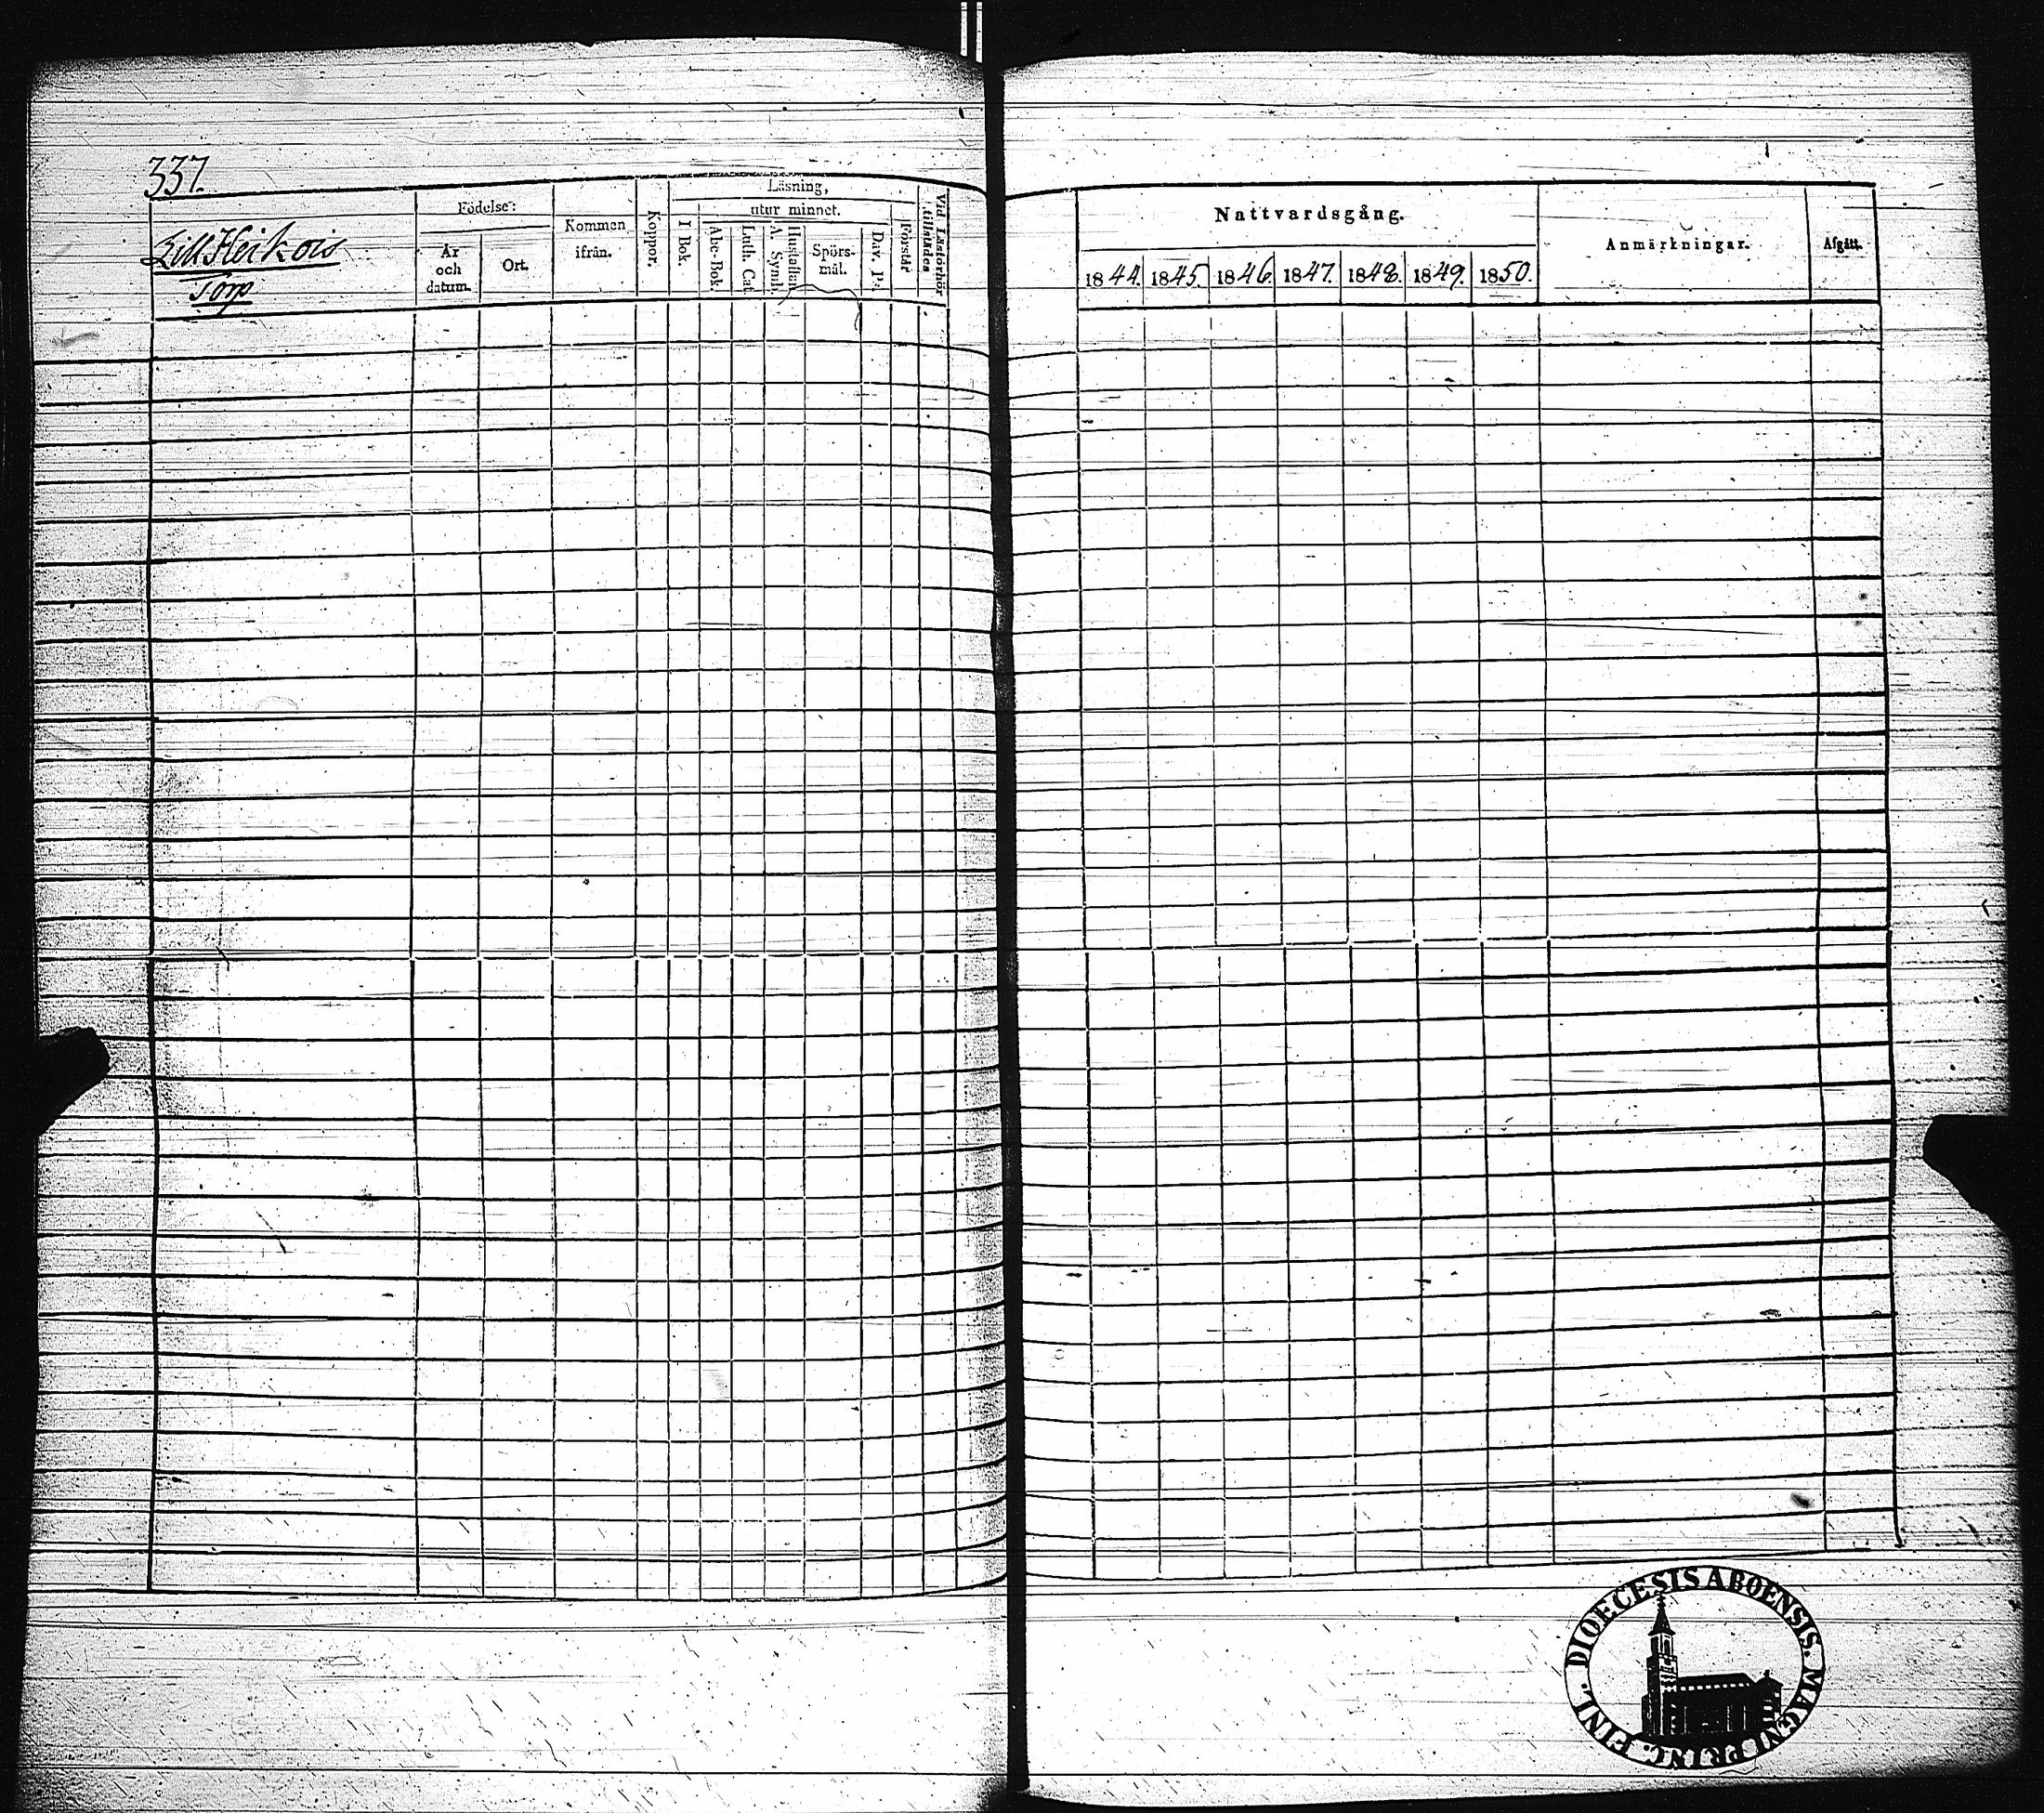 337.
Lill Heikois
Torp
Födelse:
År
och
datum.
Ort.
Kommen
ifrån.
Koppor.
Läsning,
I Bok.
utur minnet.
Abc-Bok.
Luth. Cat.
A. Symb.
Hustaflan
Spörs-
mål.
Dav. Ps.
Förstår
Vid Läsförhör
tillstädes
Nattvardsgång.
1844.
1845.
1846.
1847.
1848.
1849.
1850.
Anmärkningar.
Afgått.
DIOECESIS ABOENSIS. MAGNI PRINC. FINL.